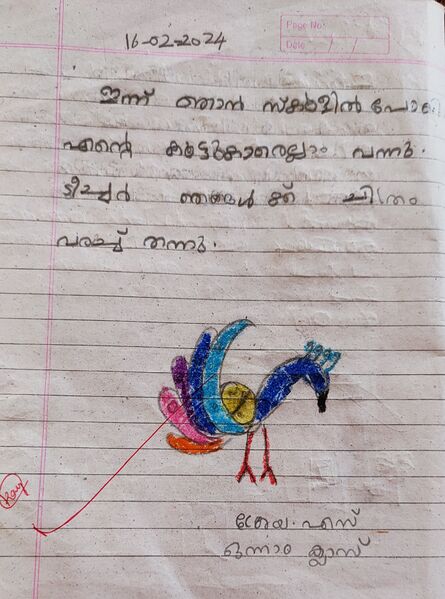 Page No:
Date / /
16-02-2024
ഇന്ന് ഞാൻ സ്കൂളിൽ പോയി
എന്റെ കൂട്ടുകാരെല്ലാം വന്നു.
ടീച്ചർ ഞങ്ങൾക്ക് ചിത്രം
വരച്ച് തന്നു.
ശ്രേയ. എസ്
ഒന്നാം ക്ലാസ്